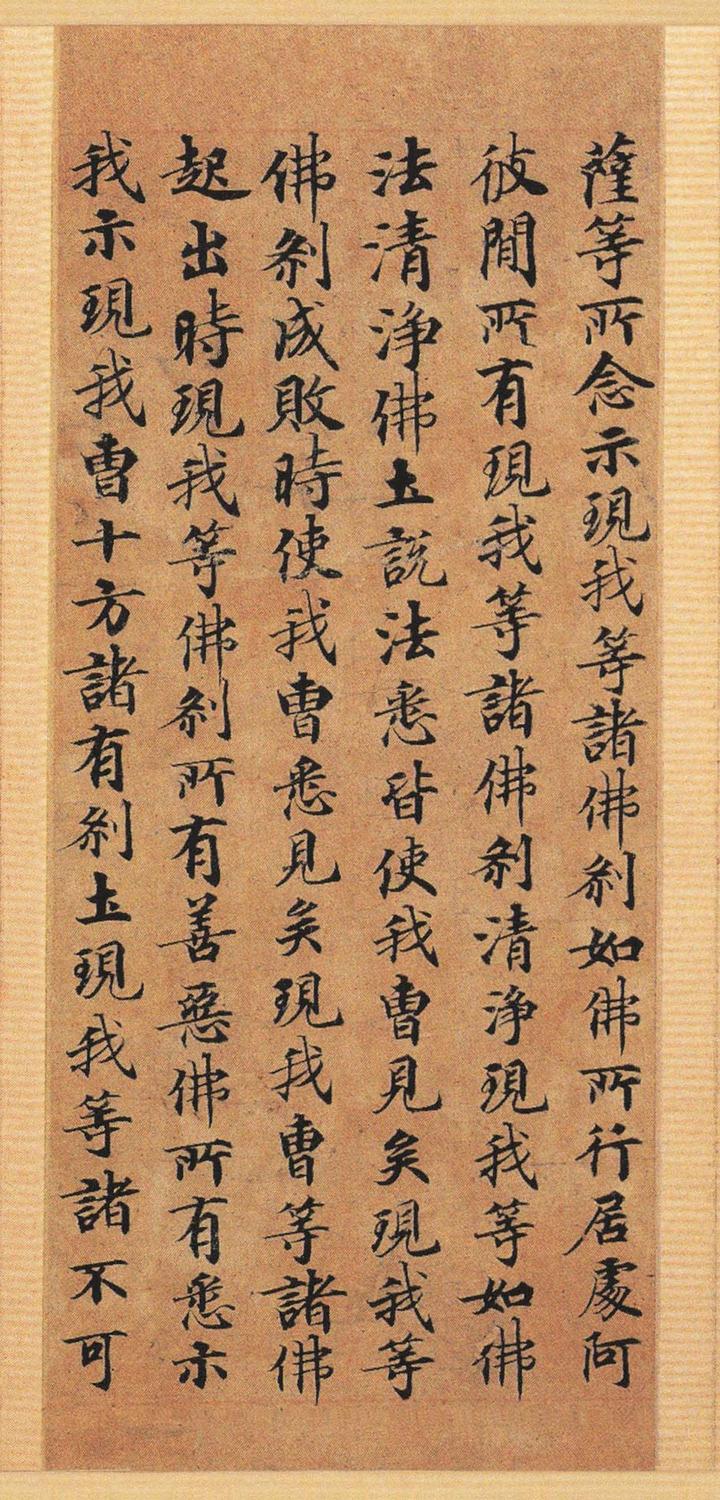 薩等所念示現我等諸佛刹如佛所行居處何
彼間所有現我等諸佛刹清淨現我等如佛
法清淨佛土說法悉皆使我曹見矣現我等
佛刹成敗時使我曹悉見矣現我曹等諸佛
起出時現我等佛刹所有善惡佛所有悉示
我示現我曹十方諸有刹土現我等諸不可